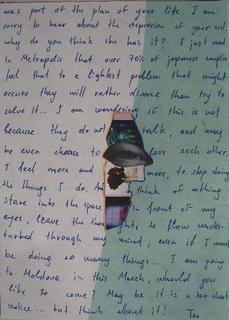 was part of the plan of your life. I am
sorry to hear about the depression of your
why do you think she has it? I just read
in Metropolis that over 70% of japanese
feel that to a lightest problem that might
occure they will rather divorce than try to
solve it... I am wandering if this is not
because they do not talk, and may
be even love each other
I feel more and more, to stop doing
the things I do, think of nothing
stare into the space in front of my
eyes, leave the thoughts, to flow undis-
turbed through my mind, even if I
be doing so many things... I am going
to Moldova in this March, whould you
like to come? May be it is a too short
notice... but think about it! Teo